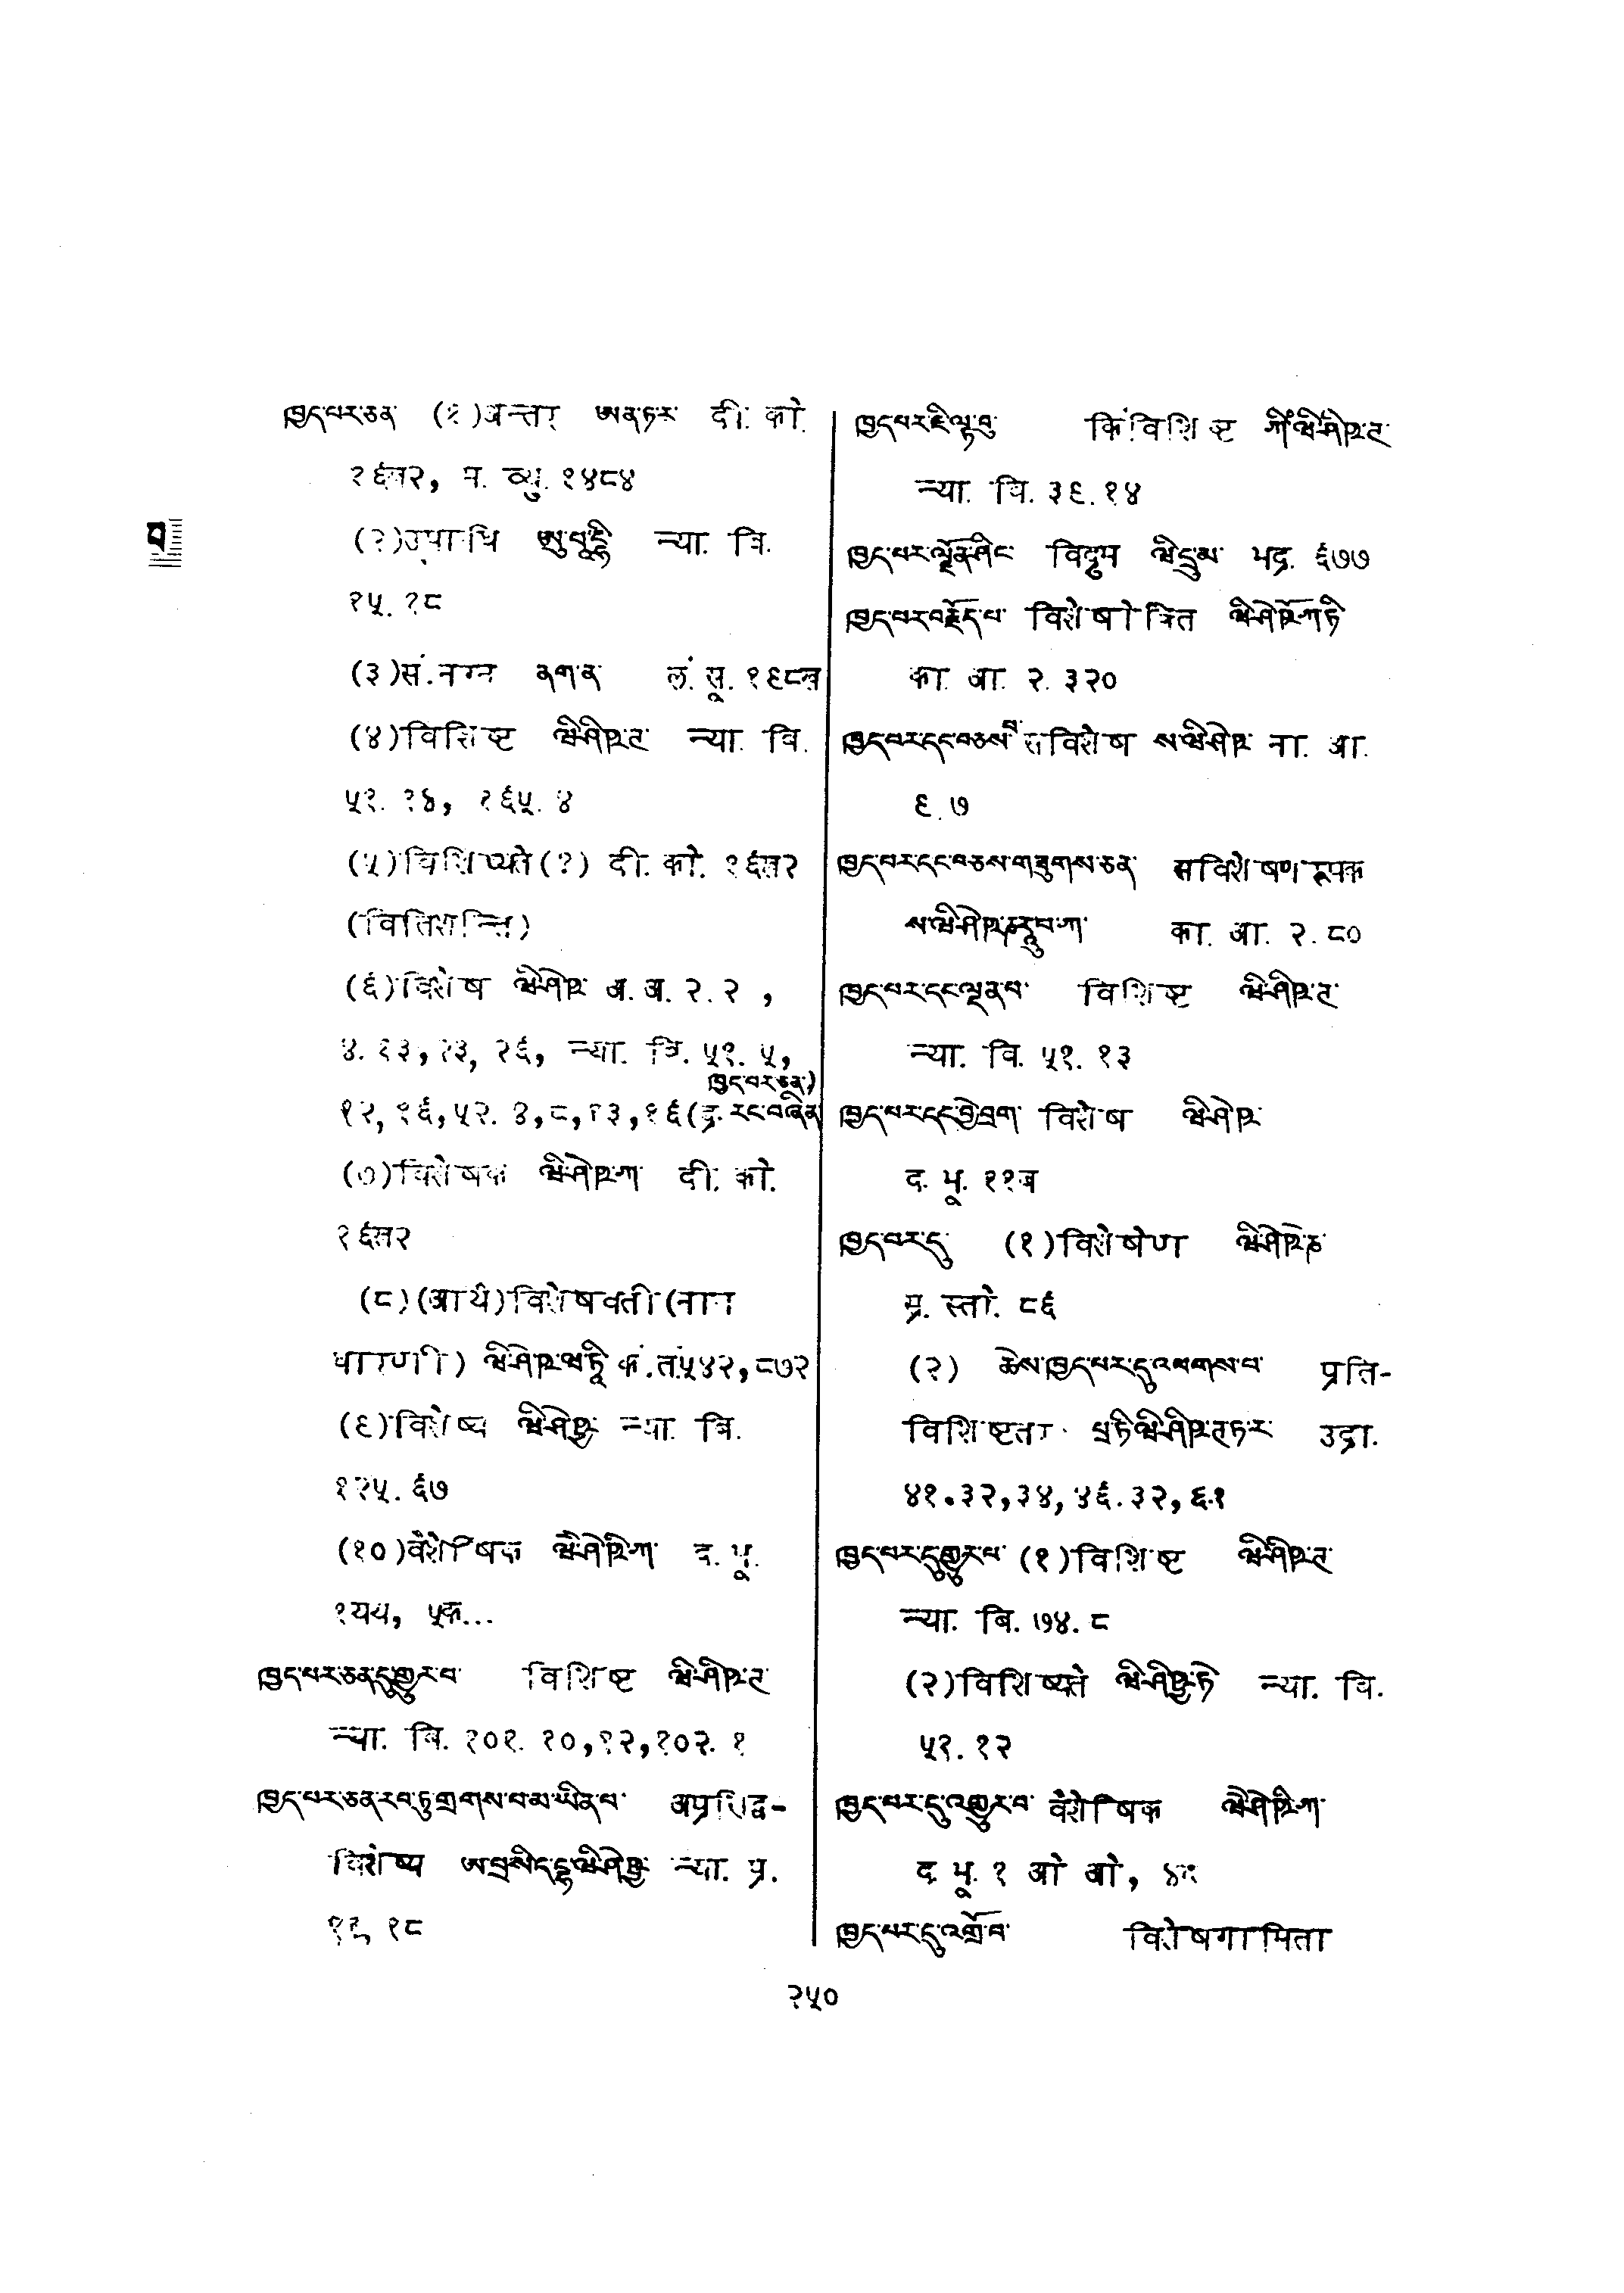 ཁྱད་པར་ཅན (१)अन्तर ཨནཏར दी. को.
१६त२, म. व्यु. १४८४
(२)उपाधि ཨུཔཱདྷི न्या. वि.
१५. १८
(३)सं.नग्न ནགན लं. सू. १९८ब
(४)विशिष्ट ཝིཤིཥྚ न्या. वि.
५१. १४, १६५. ४
(५)विशिष्यते(?) दी. को. १६त२
(वितिशन्ति)
(६)विशेष ཝིཤེཥ अ. अ. २. २ ,
४. १३, २३, २६, न्या. वि. ५१. ५,
ཁྱད་པར་ཅན)
१२, १६, ५२. ४, ८, १३, १६(द्र. རང་བཞིན
(७)विशेषक ཝིཤེཥཀ दी. को.
१६त२
(८)(आर्य)विशेषवती(नाम
धारणी) ཝིཤེཥཝཏཱི कं.तं५४२, ८७२
(९)विशेष्य ཝིཤེཥྱ न्या. वि.
१२५. ६७
(१०)वैशेषिक ཝཻཤེཥིཀ द. भू.
१यय, ५क...
ཁྱད་པར་ཅན་དུ་གྱུར་པ་ विशिष्ट ཝིཤིཥྚ
न्या. बि. १०१. १०, १२, १०२. १
ཁྱད་པར་ཅན་རབ་ཏུ་གྲགས་པ་མ་ཡིན་པ་ अप्रसिद्ध-
विशेष्य ཨཔྲསིདྡྷཝིཤེཥྱ न्या. प्र.
१२, १८
ཁྱད་པར་ཇི་ལྟ་བུ་ किंविशिष्ट ཀིཾཝིཤིཥྚ
न्या. बि. ३९. १४
ཁྱད་པར་ལྗོན་ཤིང विद्रुम ཝིདྲུམ भद्र. ६७७
ཁྱད་པར་བརྗོད་པ་ विशेषोक्ति ཝིཤེཥོཀྟི
का. आ. २. ३२०
ཁྱད་པར་དང་བཅས་པོ सविशेष སཝིཤེཥ ना. आ.
९. ७
ཁྱད་པར་དང་བཅས་གཟུགས་ཅན་ सविशेषणरूपक
སཝིཤེཥཎརཱུཔཀ का. आ. २. ८०
ཁྱད་པར་དང་ལྡན་པ་ विशिष्ट ཝིཤིཥྚ
न्या. वि. ५१. १३
ཁྱད་པར་དང་བྱེ་བྲག་ विशेष ཝིཤེཥ
द. भू. ११ज
ཁྱད་པར་དུ (१)विशेषेण ཝིཤེཥེཎ
प्र. स्तो. ८६
(२) ཆེས་ཁྱད་པར་དུ་འཕགས་པ་ प्रति-
विशिष्टतर པྲཏིཝིཤིཥྚཏར उद्रा.
४१. ३२, ३४, ४६. ३२, ६१
ཁྱད་པར་དུ་གྱུར་པ་ (१)विशिष्ट ཝིཤིཥྚ
न्या. बि. ७४. ८
(२)विशिष्यते ཝིཤིཥྱཏེ न्या. वि.
५१. १२
ཁྱད་པར་དུ་འགྱུར་བ་ वैशेषिक ཝཻཤེཥིཀ
द. भू. १ ओ ओ,
ཁྱད་པར་དུ་འགྲོ་བ་ विशेषगामिता
२५०